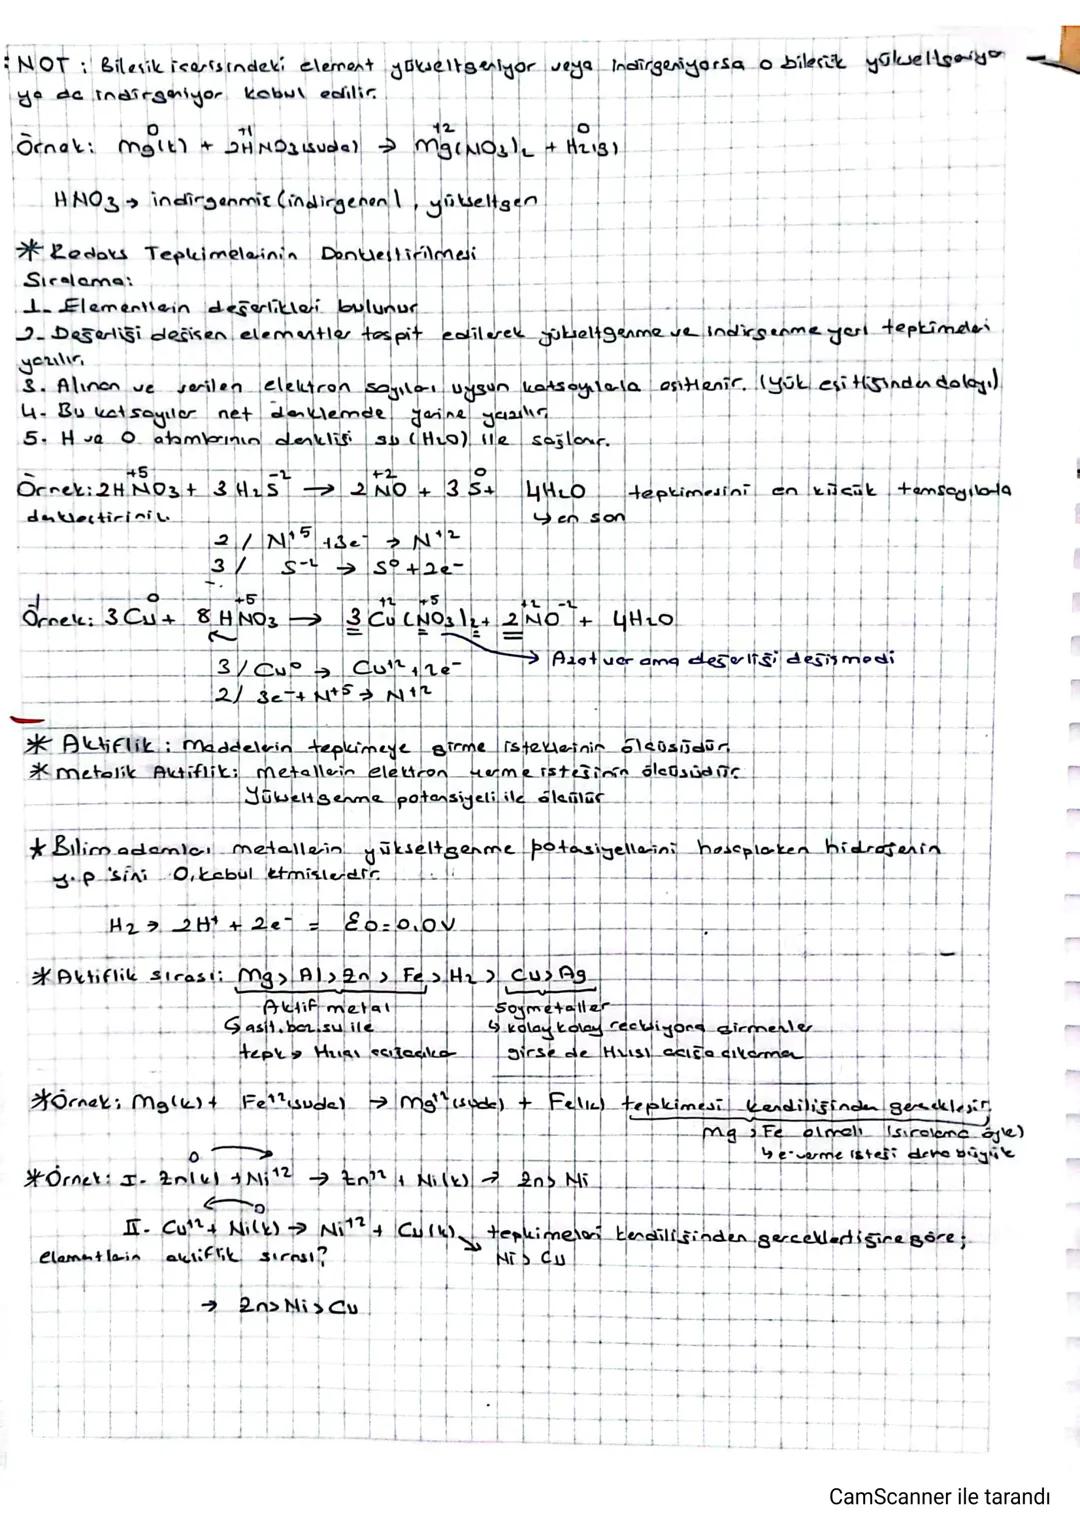 NOT : Bileşik içerisindeki element yükseltgeniyor veya indirgeniyorsa o bileşik yükseltgeniyor
ya da indirgeniyor kabul edilir.
Örnek: Mg⁰(k) + 2H⁺¹NO3(suda) → Mg⁺²(NO3)2 + H2⁰(g)
HNO3 → indirgenmiş (indirgenen), yükseltgen
* Redoks Tepkimelerinin Denkleştirilmesi
Sıralama:
1- Elementlerin değerlikleri bulunur
2- Değerliği değişen elementler tespit edilerek yükseltgenme ve indirgenme yarı tepkimeleri
yazılır.
3. Alınan ve verilen elektron sayıları uygun katsayılarla eşitlenir. (Yük eşitliğinden dolayı)
4- Bu katsayılar net denklemde yerine yazılır.
5. H ve O atomlarının denkliği su (H2O) ile sağlanır.
Örnek: 2HN⁺⁵O3 + 3H2S⁻² → 2N⁺²O + 3S⁰ + 4H2O tepkimesini en küçük tamsayılarla
denkleştiriniz. ↳ en son
2 / N⁺⁵ + 3e⁻ → N⁺²
3 / S⁻² → S⁰ + 2e⁻
Örnek: 3Cu⁰ + 8HN⁺⁵O3 → 3Cu⁺²(N⁺⁵O3)2 + 2N⁺²O⁻² + 4H2O
3 / Cu⁰ → Cu⁺² + 2e⁻ → Azot var ama değerliği değişmedi
2 / 3e⁻ + N⁺⁵ → N⁺²
* Aktiflik : Maddelerin tepkimeye girme isteklerinin ölçüsüdür.
* Metalik Aktiflik: Metallerin elektron verme isteğinin ölçüsüdür.
Yükseltgenme potansiyeli ile ölçülür
* Bilim adamları metallerin yükseltgenme potasiyellerini hesaplarken hidrojenin
y.p 'sini 0, kabul etmişlerdir.
H2 → 2H⁺ + 2e⁻ = E0 = 0,0V
* Aktiflik sırası: Mg > Al > Zn > Fe > H2 > Cu > Ag
Aktif metal Soymetaller
↳ asit, baz, su ile ↳ kolay kolay reaksiyona girmezler
tepk → H2(g) açığa çıkar girse de H2(g) açığa çıkarmaz
* Örnek: Mg(k) + Fe⁺²(suda) → Mg⁺²(suda) + Fe(k) tepkimesi kendiliğinden gerçekleşir.
Mg > Fe olmalı (sıralama öyle)
↳ e⁻ verme isteği daha büyük
* Örnek: I- Zn⁰(k) + Ni⁺² → Zn⁺² + Ni(k) → Zn > Ni
II- Cu⁺² + Ni⁰(k) → Ni⁺² + Cu(k) tepkimeleri kendiliğinden gerçekleştiğine göre;
elementlerin aktiflik sırası? ↘ Ni > Cu
→ Zn > Ni > Cu
CamScanner ile tarandı